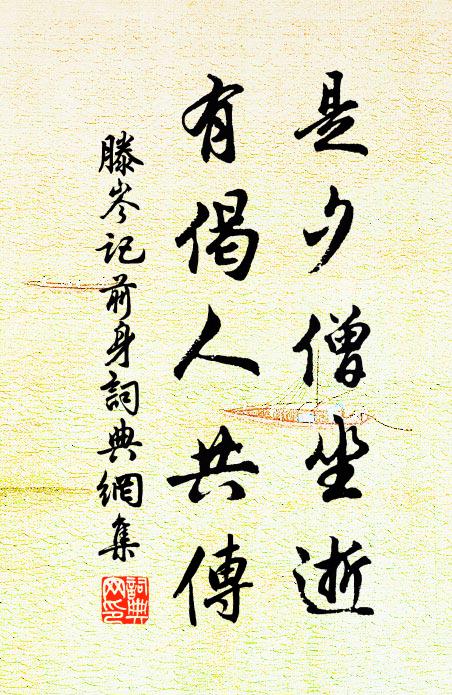 是夕僧坐逝
有偈人共傳
滕岑記前身詞典網集
詞典網印